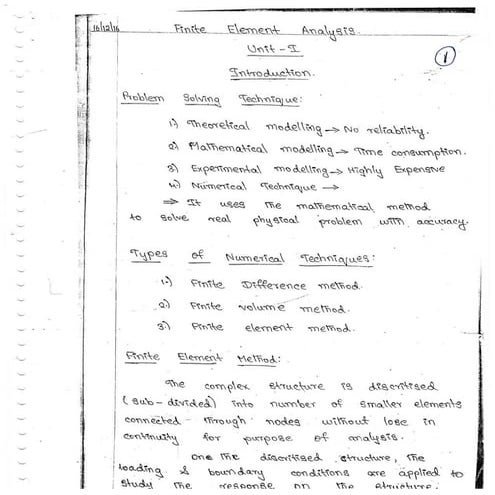 16/12/16
Finite Element Analysis.
Unit - I
1
Introduction.
Problem Solving Technique:
1.) Theoretical modelling → No reliability.
2) Mathematical modelling → Time consumption.
3) Experimental modelling → Highly Expensive
4.) Numerical Technique →
⇒ It uses the mathematical method
to solve real physical problem with accuracy.
Types of Numerical Techniques:
1.) Finite Difference method.
2) Finite volume method.
3) Finite element method.
Finite Element Method:
The complex structure is discritised
(sub-divided) into number of smaller elements
connected through nodes without lose in
continuity for purpose of analysis.
One the discritised structure, the
loading & boundary conditions are applied to
study the response on the structure.